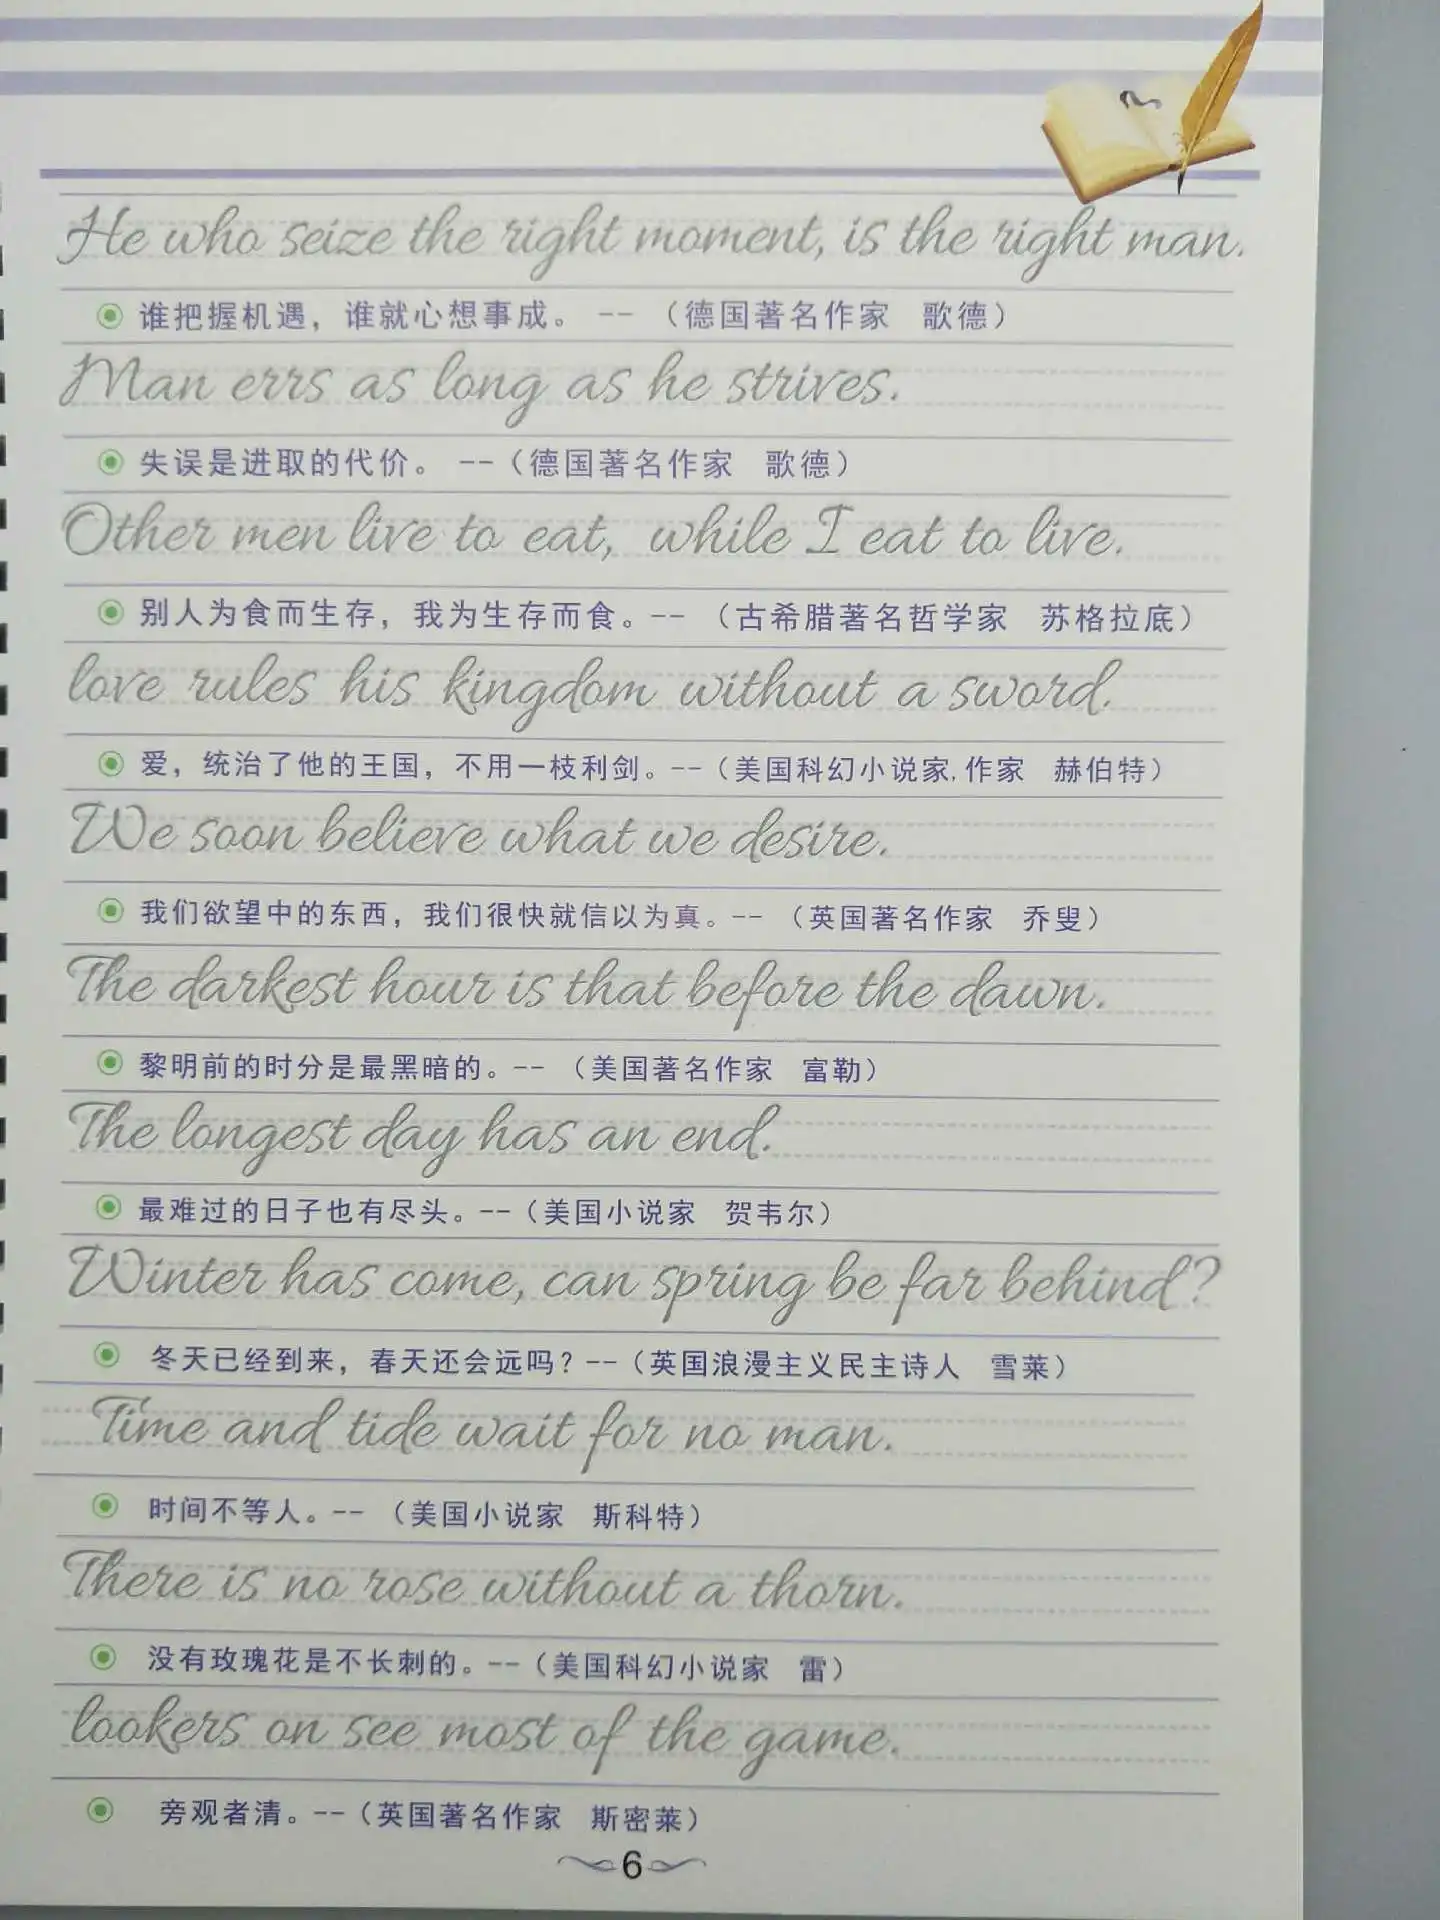 He who seize the right moment, is the right man.
谁把握机遇，谁就心想事成。 -- （德国著名作家 歌德）
Man errs as long as he strives.
失误是进取的代价。 --（德国著名作家 歌德）
Other men live to eat, while I eat to live.
别人为食而生存，我为生存而食。-- （古希腊著名哲学家 苏格拉底）
love rules his kingdom without a sword.
爱，统治了他的王国，不用一枝利剑。--（美国科幻小说家,作家 赫伯特）
We soon believe what we desire.
我们欲望中的东西，我们很快就信以为真。-- （英国著名作家 乔叟）
The darkest hour is that before the dawn.
黎明前的时分是最黑暗的。-- （美国著名作家 富勒）
The longest day has an end.
最难过的日子也有尽头。--（美国小说家 贺韦尔）
Winter has come, can spring be far behind?
冬天已经到来，春天还会远吗？--（英国浪漫主义民主诗人 雪莱）
Time and tide wait for no man.
时间不等人。-- （美国小说家 斯科特）
There is no rose without a thorn.
没有玫瑰花是不长刺的。--（美国科幻小说家 雷）
lookers on see most of the game.
旁观者清。--（英国著名作家 斯密莱）
6